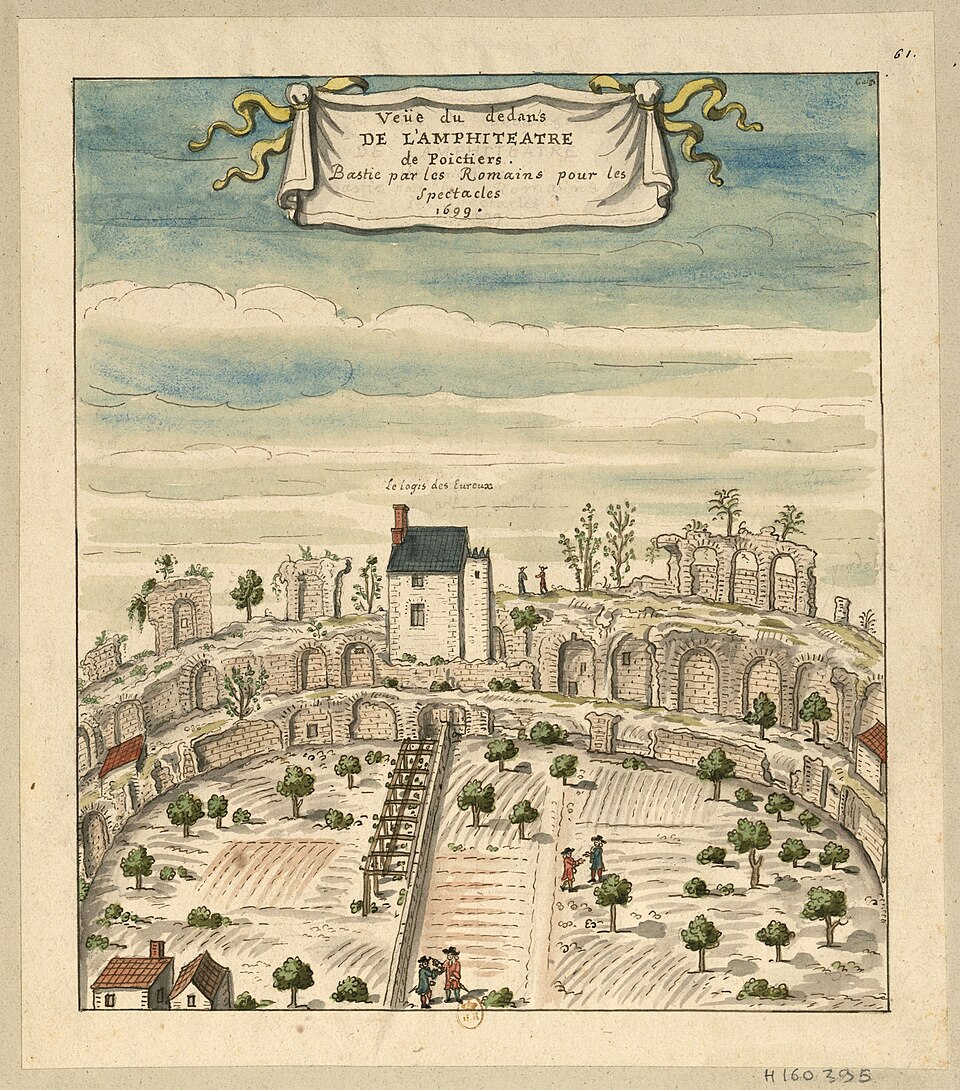 61.
Veüe du dedans
DE L'AMPHITEATRE
de Poictiers.
Bastie par les Romains pour les
Spectacles
1699.
Le logis des Eureux
H160395